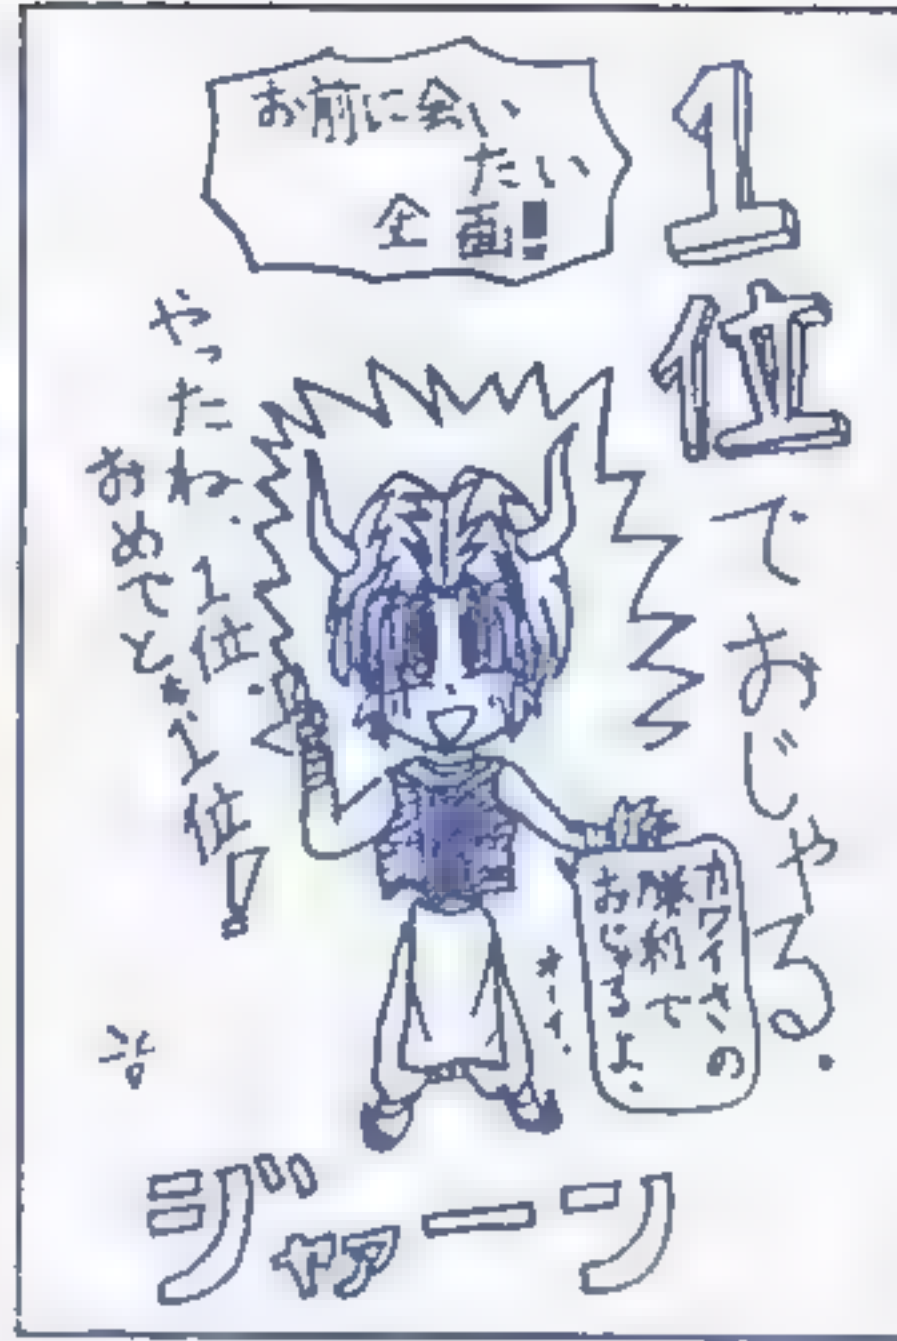 お前に会い
たい
企画!!
1位でおじゃる.
やったね.1位.
おめでと.1位!
カワイさの
勝利で
おじゃるよ.
オーイ.
ジャァーン